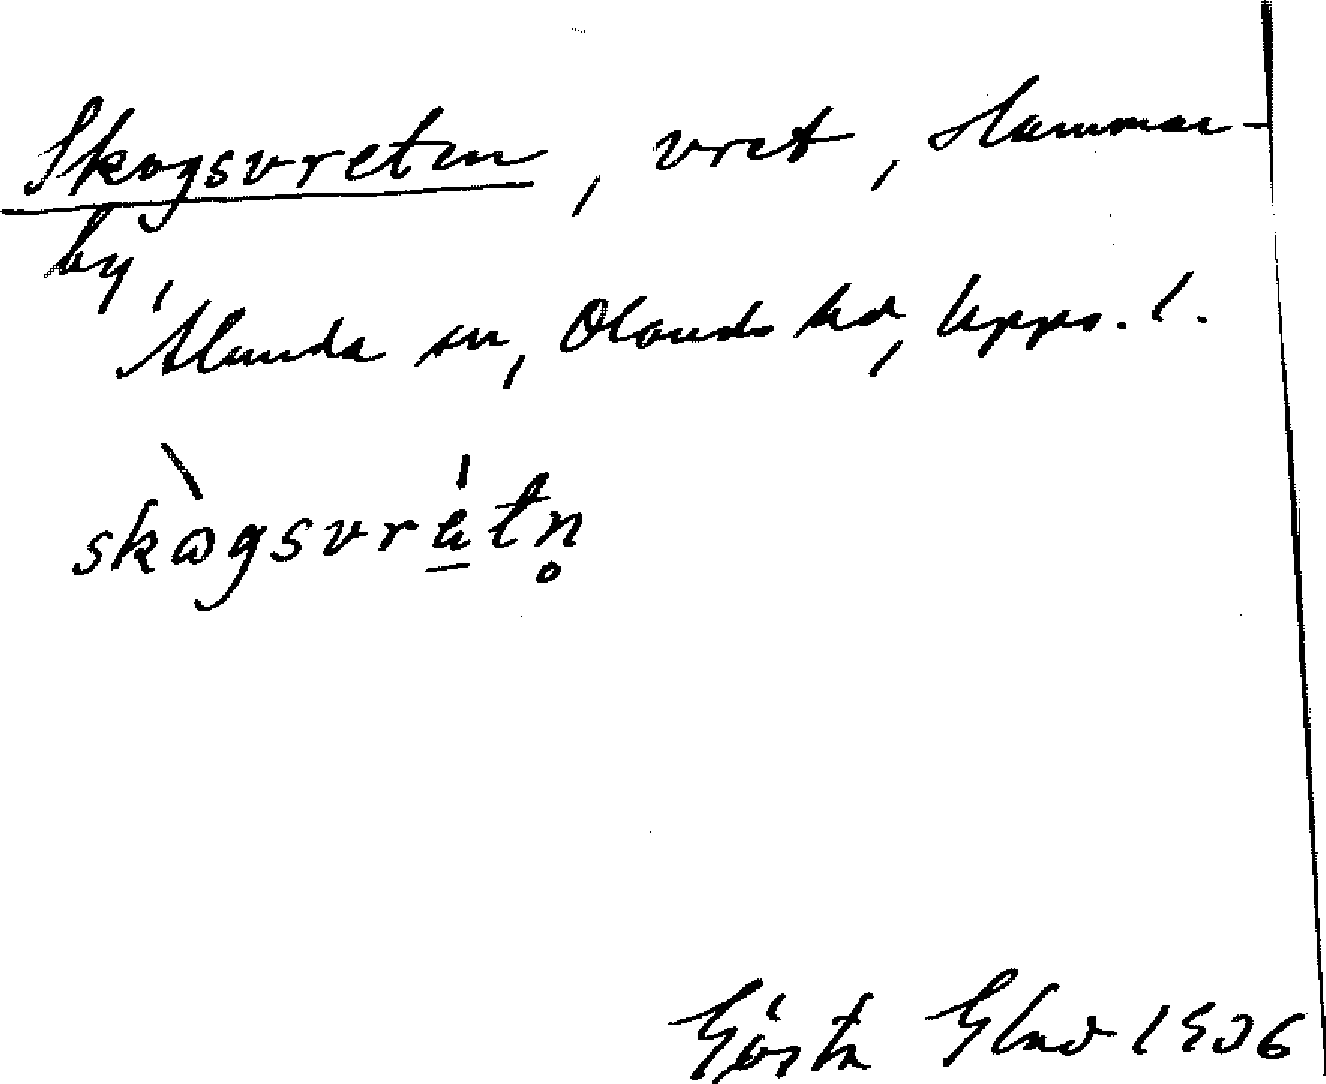 Skogsvreten, vret, Hammar-
by,
Alunda sn, Olands hd, Upps. l.
skògsvrétn̥
Gösta